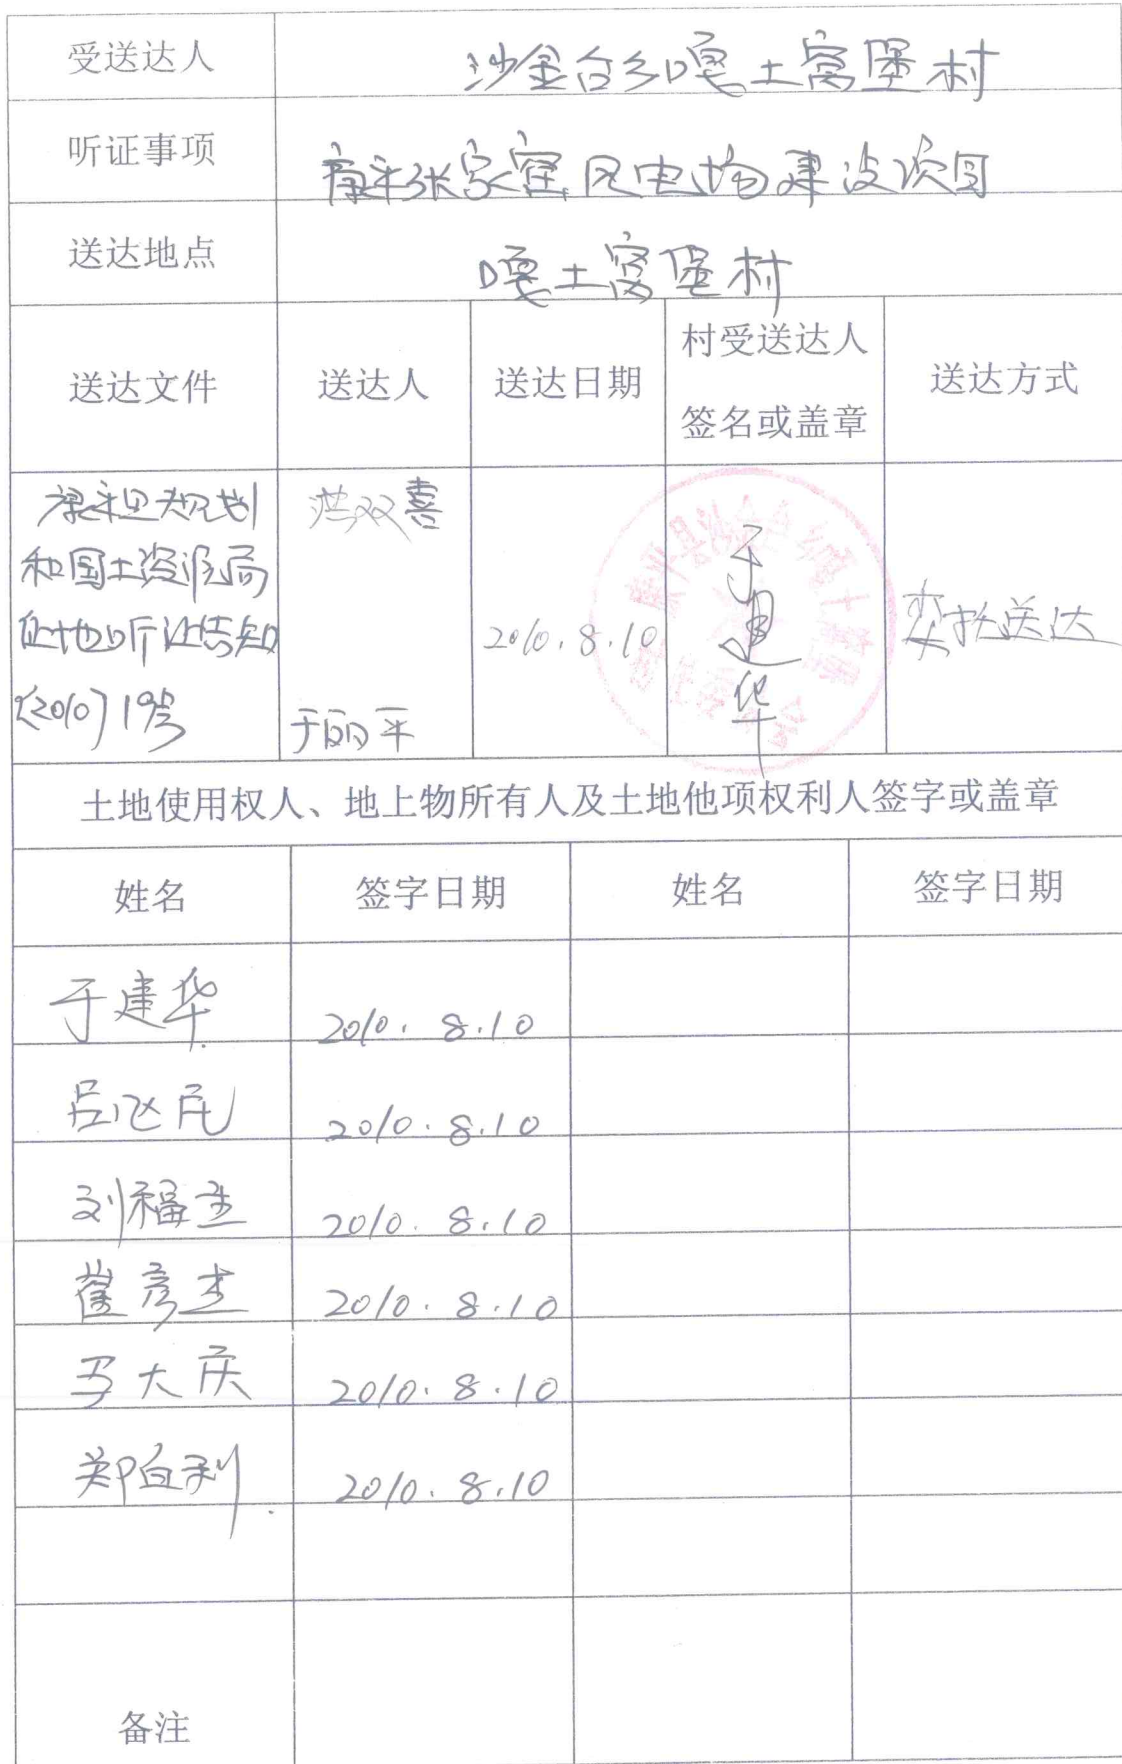 受送达人
沙金台乡嘎土窝堡村
听证事项
康平张家窑风电场建设项目
送达地点
嘎土窝堡村
送达文件
送达人
送达日期
村受送达人
签名或盖章
送达方式
康平县规划
和国土资源局
征地听证告知
(2010)19号
洪双喜
于丽平
2010.8.10
于建华
直接送达
土地使用权人、地上物所有人及土地他项权利人签字或盖章
姓名
签字日期
姓名
签字日期
于建华
2010.8.10
2010.8.10
刘福
2010.8.10
崔彦杰
2010.8.10
马大庆
2010.8.10
郑自利
2010.8.10
备注